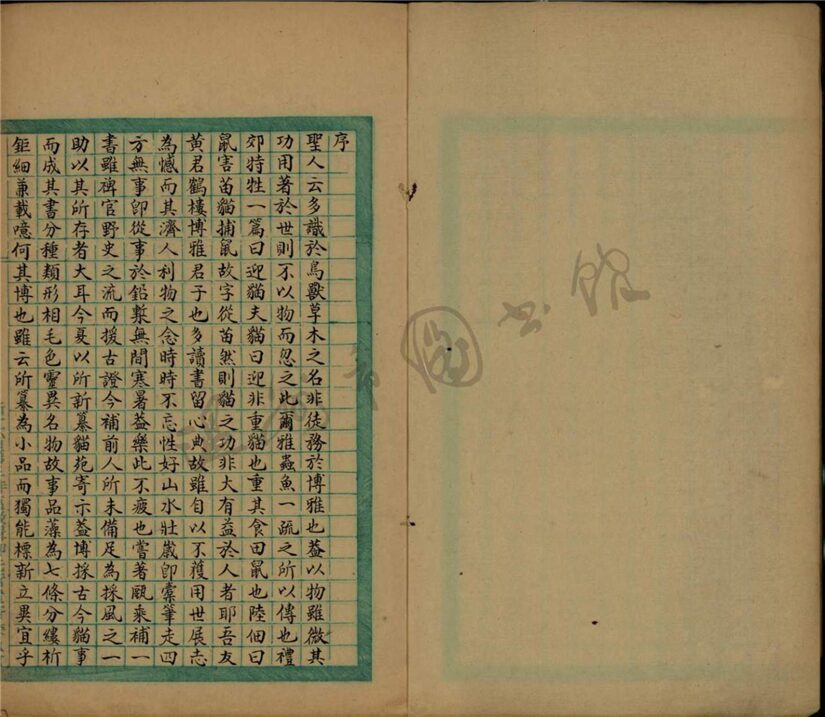 序
聖人云多識於鳥獸草木之名非徒務於博雅也葢以物雖微其
功用著於世則不以物而忽之此爾雅蟲魚一疏之所以傳也禮
郊特牲一篇曰迎貓夫貓曰迎非重貓也重其食田鼠也陸佃曰
鼠害苗貓捕鼠故字從苗然則貓之功非大有益於人者耶吾友
黃君鶴樓博雅君子也多讀書留心典故雖自以不獲用世展志
為憾而其濟人利物之念時時不忘性好山水壯嵗即橐筆走四
方無事即從事於鉛槧無間寒暑葢樂此不疲也嘗著甌乘補一
書雖稗官野史之流而援古證今補前人所未備足為採風之一
助以其所存者大耳今夏以所新纂貓苑寄示葢博採古今貓事
而成其書分種類形相毛色靈異名物故事品藻為七條分縷析
鉅細兼載噫何其博也雖云所纂為小品而獨能標新立異宜乎
圖書館